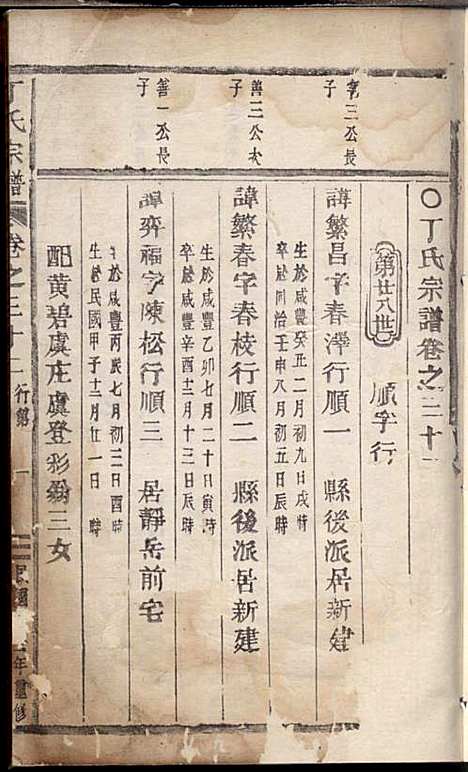 〇丁氏宗譜卷之三十
第廿八世 順字行
善三公長子
諱繁昌字春澤行順一 縣後派居新建
生於咸豐癸丑二月初九日戌時
卒於同治壬申八月初五日辰時
善三公次子
諱繁春字春枝行順二 縣後派居新建
生於咸豐乙卯七月二十日寅時
卒於咸豐辛酉十二月十三日辰時
善一公長子
諱弈福字陳松行順三 居靜岳前宅
生於咸豐丙辰七月初二日酉時
卒於民國甲子十二月廿一日 時
配黃碧虞庄虞登彩翁三女
丁氏宗譜
卷之三十二 行第 一
民國 年重修